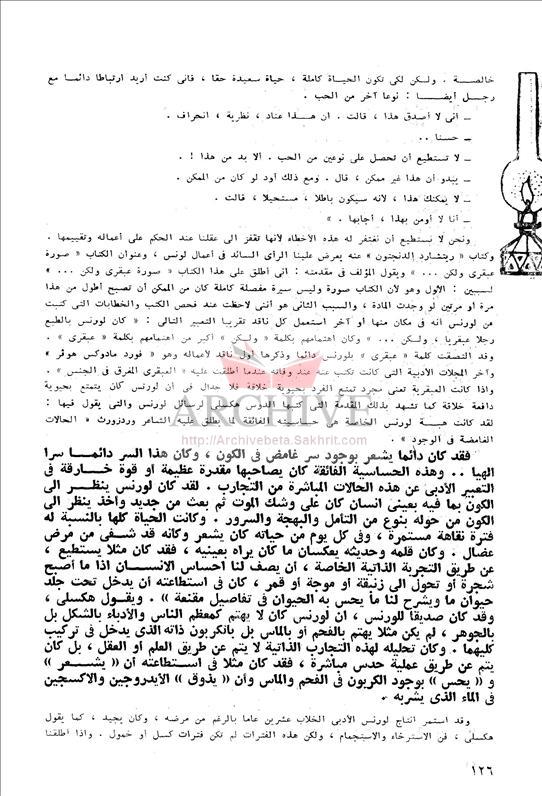 خالصة . ولكن لكى تكون الحياة كاملة ، حياة سعيدة حقا ، فانى كنت أريد ارتباطا دائما مع
رجل أيضا : نوعا آخر من الحب .
ــ انى لا أصدق هذا ، قالت . ان هذا عناد ، نظرية ، انحراف .
ــ حسنا ..
ــ لا تستطيع أن تحصل على نوعين من الحب . ألا بد من هذا ! .
ــ يبدو أن هذا غير ممكن ، قال . ومع ذلك أود لو كان من الممكن .
ــ لا يمكنك هذا ، لأنه سيكون باطلا ، مستحيلا ، قالت .
ــ أنا لا أومن بهذا ، أجابها . »
ونحن لا نستطيع أن نغتفر له هذه الأخطاء لأنها تقفز الى عقلنا عند الحكم على أعماله وتقييمها .
وكتاب « ريتشارد الدنجتون » عنه يعرض علينا الرأى السائد فى أعمال لورنس ، وعنوان الكتاب « صورة
عبقرى ولكن ... » ويقول المؤلف فى مقدمته : انى أطلق على هذا الكتاب « صورة عبقرى ولكن ... »
لسببين : الأول وهو لأن الكتاب صورة وليس سيرة مفصلة كاملة كان من الممكن أن تصبح أطول من هذا
مرة أو مرتين لو وجدت المادة ، والسبب الثانى هو أننى لاحظت عند فحص الكتب والخطابات التى كتبت
عن لورنس أنه فى مكان منها أو آخر استعمل كل ناقد تقريبا التعبير التالى : « كان لورنس بالطبع
رجلا عبقريا ، ولكن ... » وكان اهتمامهم بكلمة « ولكن » أكبر من اهتمامهم بكلمة « عبقرى » .
وقد التصقت كلمة « عبقرى » بلورنس دائما وذكرها أول ناقد لأعماله وهو « فورد مادوكس هوفر »
وآخر المجلات الأدبية التى كانت تكتب عنه عند وفاته عندما أطلقت عليه « العبقرى المغرق فى الجنس » .
واذا كانت العبقرية تعنى مجرد تمتع الفرد بحيوية خلاقة فلا جدال فى أن لورنس كان يتمتع بحيوية
دافعة خلاقة كما تشهد بذلك المقدمة التى كتبها الدوس هكسلى لرسائل لورنس والتى يقول فيها :
لقد كانت هبة لورنس الخاصة هى حساسيته الفائقة لما يطلق عليه الشاعر وردزورث « الحالات
الغامضة فى الوجود » .
ARCHIVE
http://Archivebeta.Sakhrit.com
فقد كان دائما يشعر بوجود سر غامض فى الكون ، وكان هذا السر دائما سرا
الهيا .. وهذه الحساسية الفائقة كان يصاحبها مقدرة عظيمة أو قوة خارقة فى
التعبير الأدبى عن هذه الحالات المباشرة من التجارب . لقد كان لورنس ينظر الى
الكون بما فيه بعينى انسان كان على وشك الموت ثم بعث من جديد وأخذ ينظر الى
الكون من حوله بنوع من التأمل والبهجة والسرور . وكانت الحياة كلها بالنسبة له
فترة نقاهة مستمرة ، وفى كل يوم من حياته كان يشعر وكأنه قد شفى من مرض
عضال . وكان قلمه وحديثه يعكسان ما كان يراه بعينيه ، فقد كان مثلا يستطيع ،
عن طريق التجربة الذاتية الخاصة ، أن يصف لنا احساس الانسان اذا ما أصبح
شجرة أو تحول الى زنبقة أو موجة أو قمر ، كان فى استطاعته أن يدخل تحت جلد
حيوان ما ويشرح لنا ما يحس به الحيوان فى تفاصيل مقنعة » . ويقول هكسلى ،
وقد كان صديقا للورنس ، ان لورنس كان لا يهتم كمعظم الناس والأدباء بالشكل بل
بالجوهر ، لم يكن مثلا يهتم بالفحم أو بالماس بل بالكربون ذاته الذى يدخل فى تركيب
كليهما . وكان تحليله لهذه التجارب الذاتية لا يتم عن طريق العلم أو العقل ، بل كان
يتم عن طريق عملية حدس مباشرة ، فقد كان مثلا فى استطاعته أن « يشعر »
و « يحس » بوجود الكربون فى الفحم والماس وأن « يذوق » الأيدروجين والأكسجين
فى الماء الذى يشربه .
وقد استمر انتاج لورنس الأدبى الخلاب عشرين عاما بالرغم من مرضه ، وكان يجيد ، كما يقول
هكسلى ، فن الاسترخاء والاستجمام ، ولكن هذه الفترات لم تكن فترات كسل أو خمول . واذا أطلقنا
١٢٦